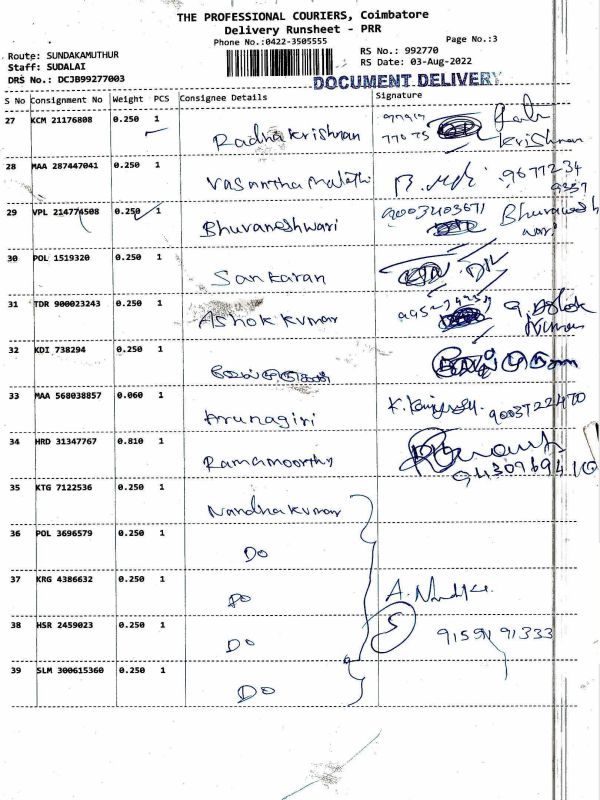 THE PROFESSIONAL COURIERS, Coimbatore
Delivery Runsheet - PRR
Phone No.:0422-3505555
Page No.:3
Route: SUNDAKAMUTHUR
RS No.: 992770
Staff: SUDALAI
RS Date: 03-Aug-2022
DRS No.: DCJB99277003
DOCUMENT DELIVERY
S No Consignment No Weight PCS Consignee Details Signature
27 KCM 21176808 0.250 1 Radhakrishnan
77075 Krishnan
28 MAA 287447041 0.250 1 Vasanthamalathi 9677234
9357
29 VPL 214774508 0.250 1 Bhuvaneshwari 9003403671 Bhuvanesh
wari
30 POL 1519320 0.250 1 Sankaran
31 TDR 900023243 0.250 1 Ashok Kumar G. Ashok
Kumar
32 KDI 738294 0.250 1
33 MAA 568038857 0.060 1 Arunagiri 9003722470
34 HRD 31347767 0.810 1 Ramamoorthy
9430969410
35 KTG 7122536 0.250 1 Nandhakumar
36 POL 3696579 0.250 1 Do
37 KRG 4386632 0.250 1 Do
38 HSR 2459023 0.250 1 Do 5 9159191333
39 SLM 300615360 0.250 1 Do